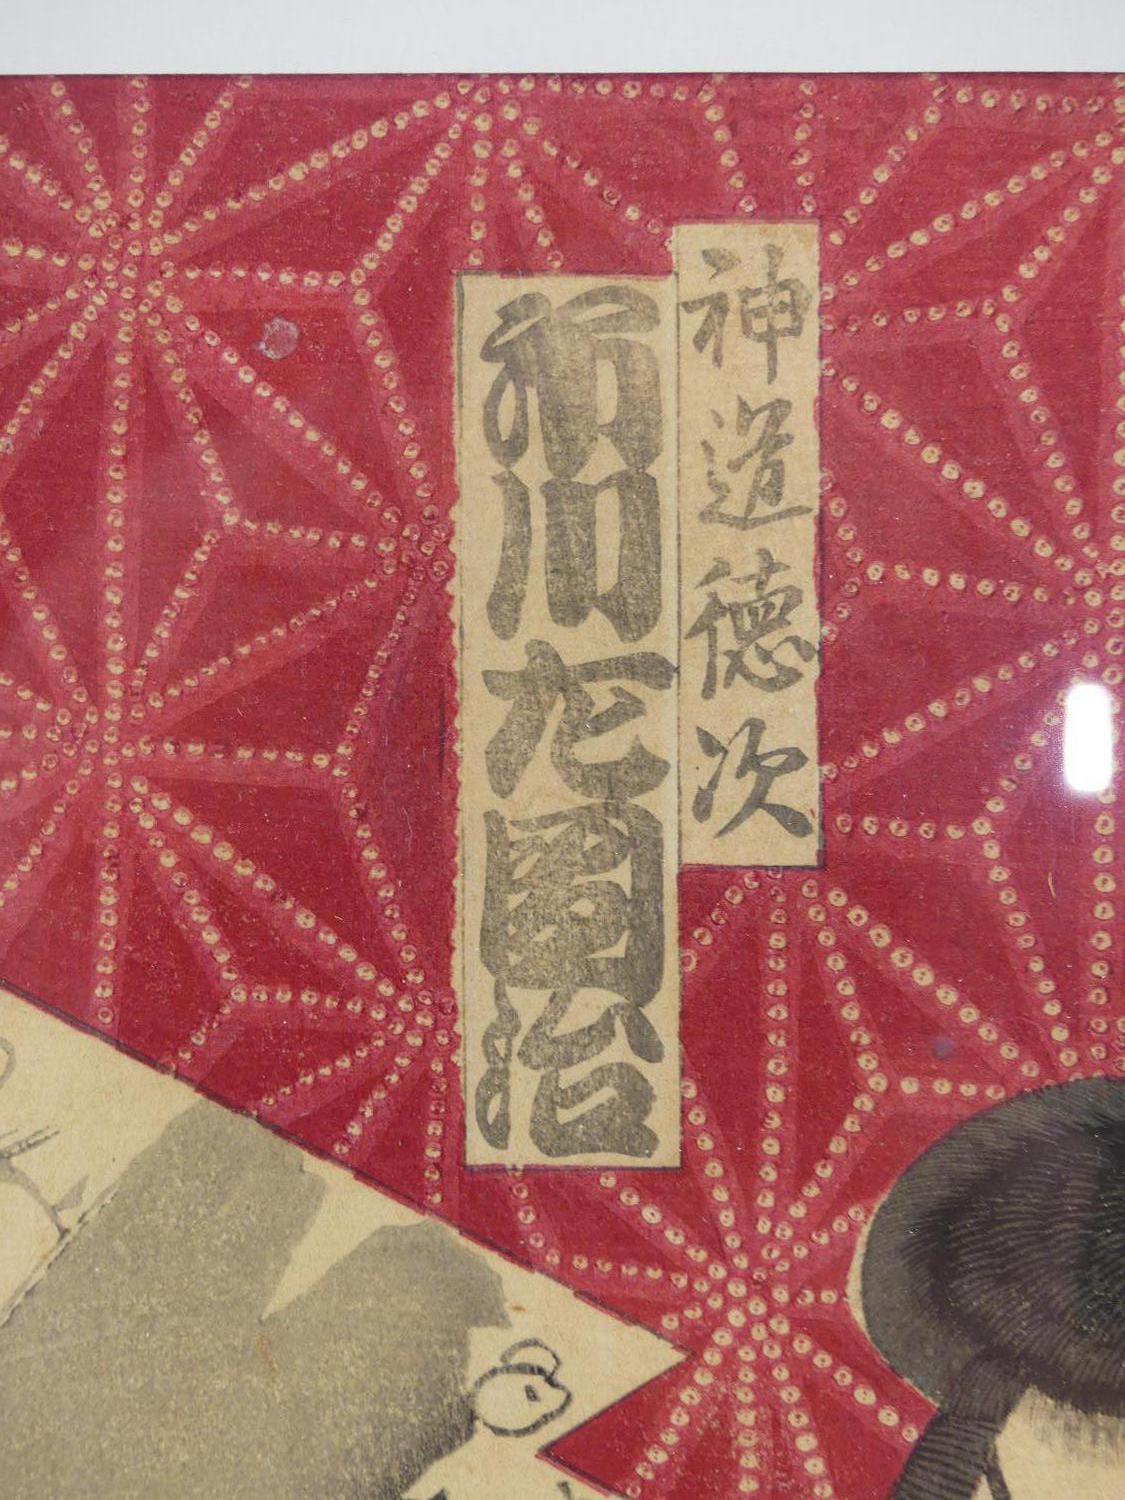 神道徳次
市川左團治